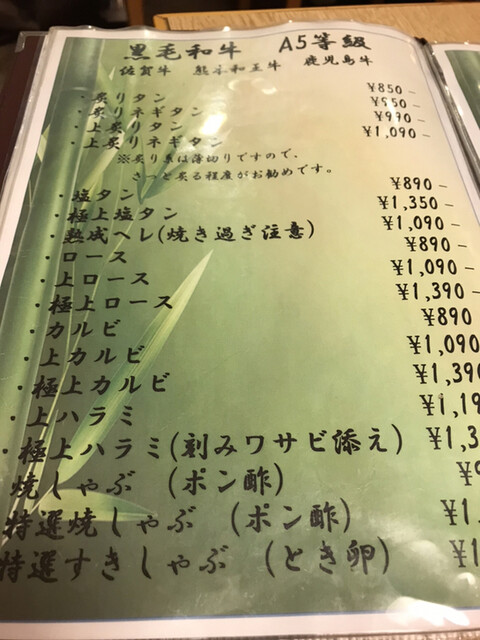 黒毛和牛 A5等級
佐賀牛 熊本和王牛 鹿児島牛
・炙りタン ¥850-
・炙りネギタン ¥950-
・上炙りタン ¥990-
・上炙りネギタン ¥1,090-
※炙り系は薄切りですので、
さっと炙る程度がお勧めです。
・塩タン ¥890-
・極上塩タン ¥1,350-
・熟成ヘレ(焼き過ぎ注意) ¥1,090-
・ロース ¥890-
・上ロース ¥1,090-
・極上ロース ¥1,390-
・カルビ ¥890
・上カルビ ¥1,090
・極上カルビ ¥1,39
・上ハラミ ¥1,19
・極上ハラミ(刻みワサビ添え) ¥1,3
焼しゃぶ (ポン酢)
特選焼しゃぶ (ポン酢) ¥1
特選すきしゃぶ (とき卵) ¥1